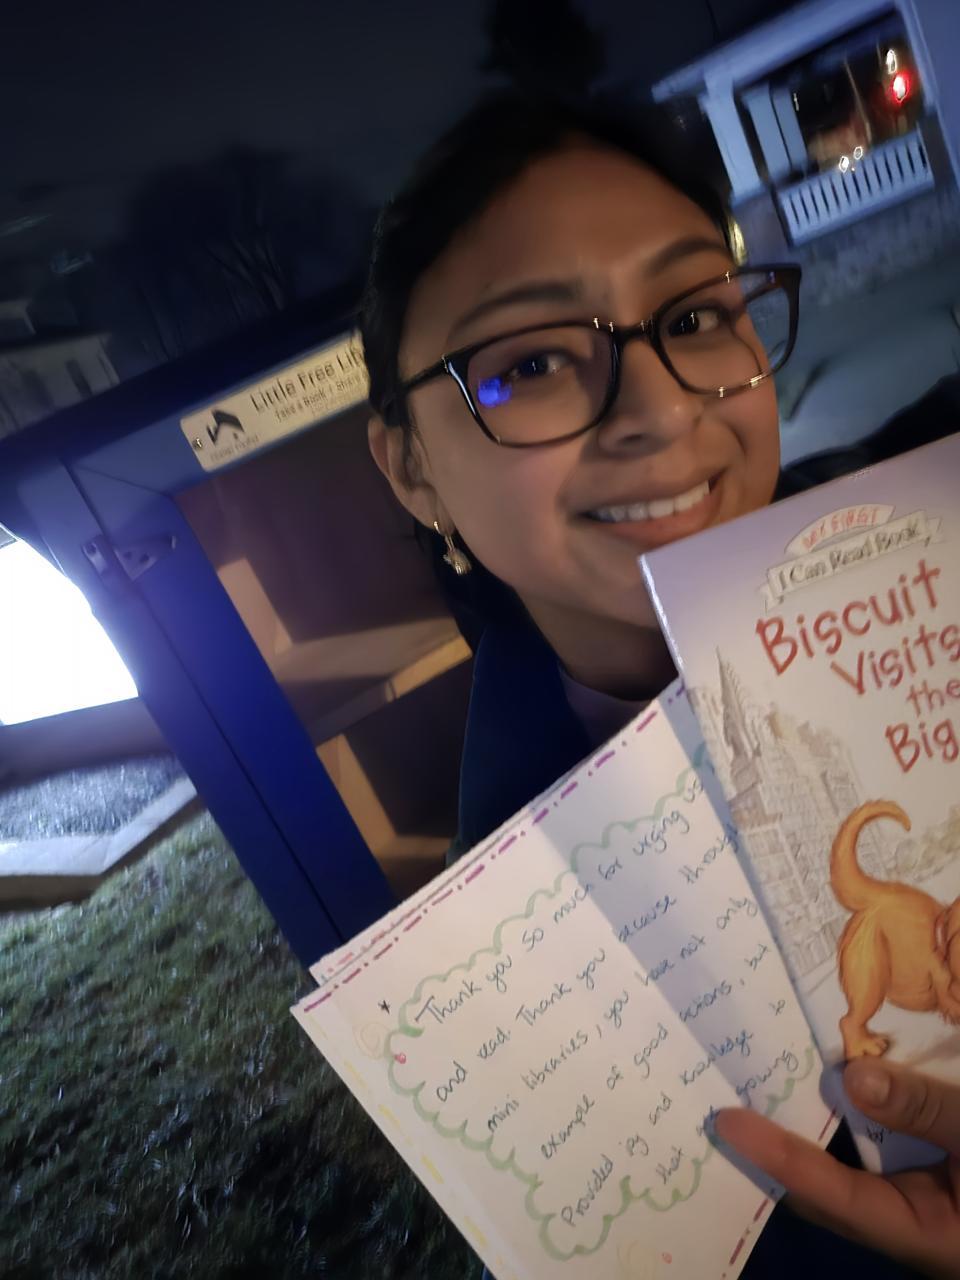 Little Free Li
Take a Book • Share
MY FIRST
I Can Read Book
Biscuit
Visits
the
Big
Thank you so much for urging us
and read. Thank you because through
mini libraries, you have not only
example of good actions, but
Provided joy and knowledge to
that are growing.